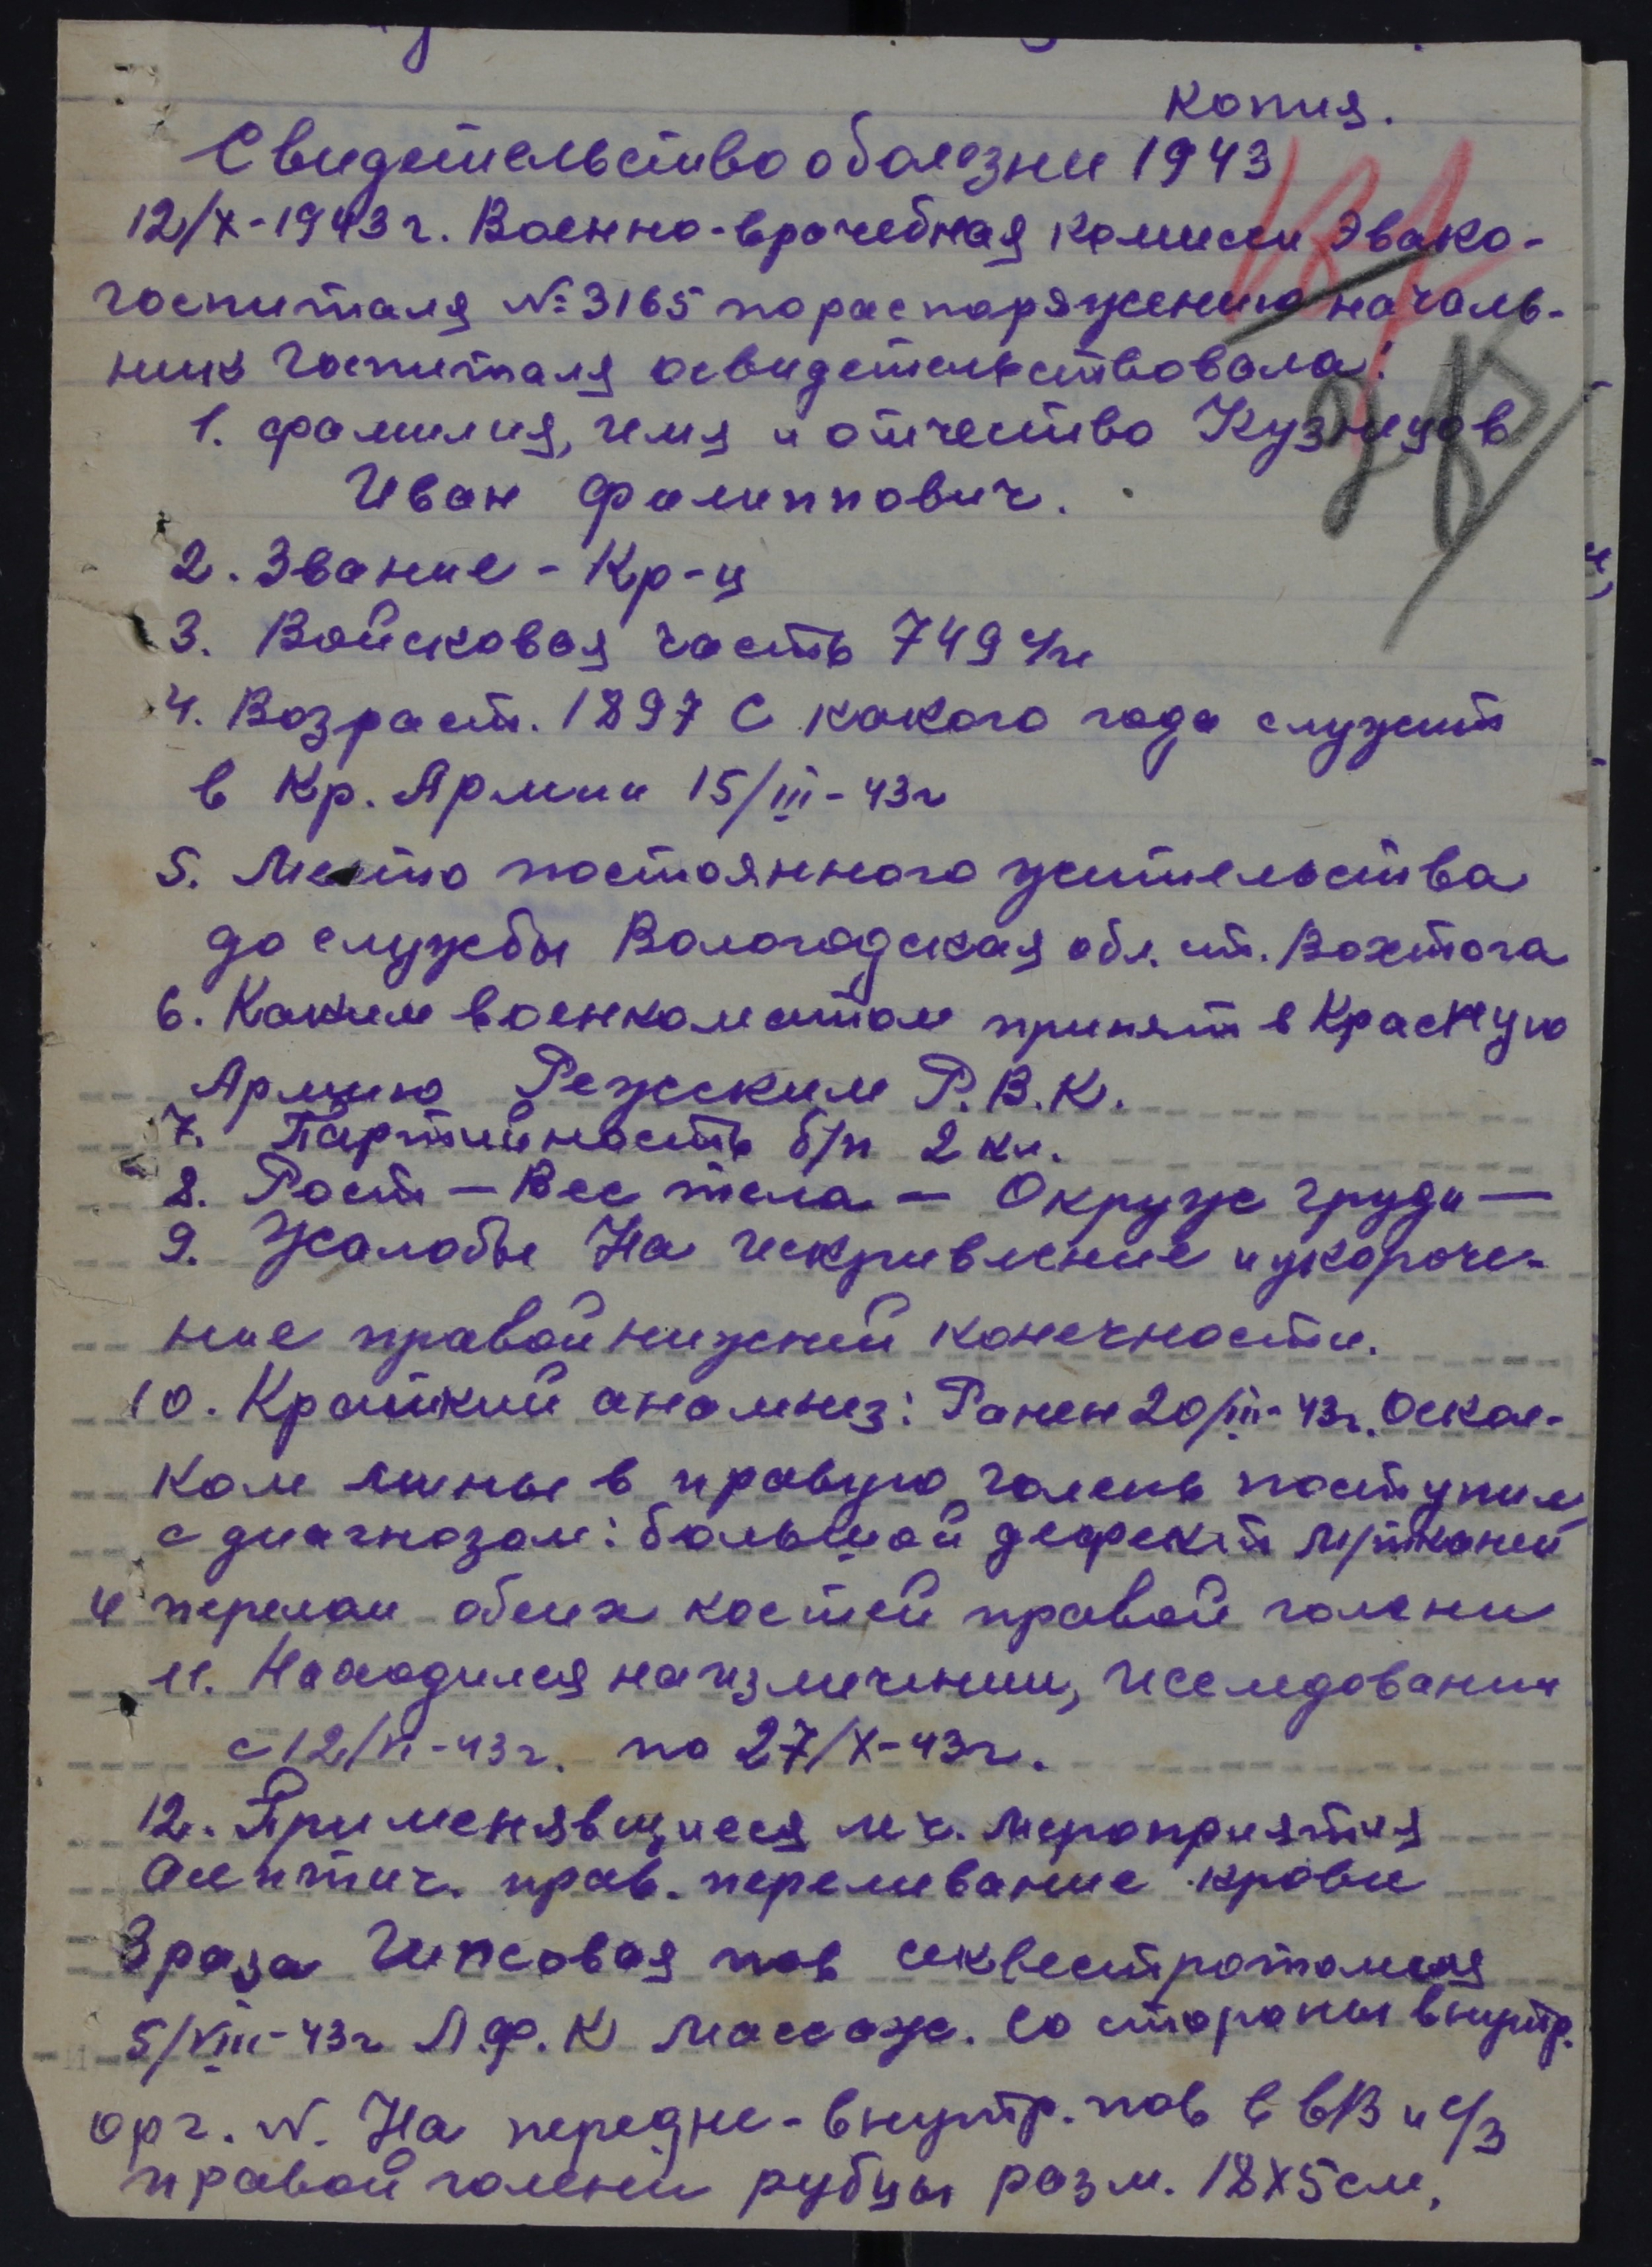 Копия.
Свидетельство о болезни 1943
12/X-1943 г. Военно-врачебная комисси Эвако-
госпиталя № 3165 по распоряжению началь-
ника госпиталя освидетельствовала:
1. фамилия, имя и отчество Кузнецов
Иван Филиппович.
2. Звание - Кр-ц
3. Войсковая часть 749 с/п
4. Возраст. 1897 С какого года служит
в Кр. Армии 15/III-43г
5. Место постоянного жительства
до службы Вологодская обл. ст. Вохтога
6. Каким военкоматом принят в Красную
Армию Режским Р.В.К.
7. Партийность б/п 2 кл.
8. Рост — Вес тела — Окруж груди —
9. Жалобы На искривление и укороче-
ние правой нижней конечности.
10. Краткий анамнез: Ранен 20/III-43г. Оскол-
ком мины в правую голень поступил
с диагнозом: большой дефект м/тканей
и перелом обеих костей правой голени
11. Находился на излечении, исследовании
с 12/VI-43г. по 27/X-43г.
12. Применявщиеся леч. мероприятия
Асептич. прав. переливание крови
3 раза Гипсовая пов секвестротомия
5/VIII-43г Л.ф.К Массаж. Со стороны внутр.
орг. N. На передне-внутр. пов в в/3 и с/3
правой голени рубцы разм. 18х5см,